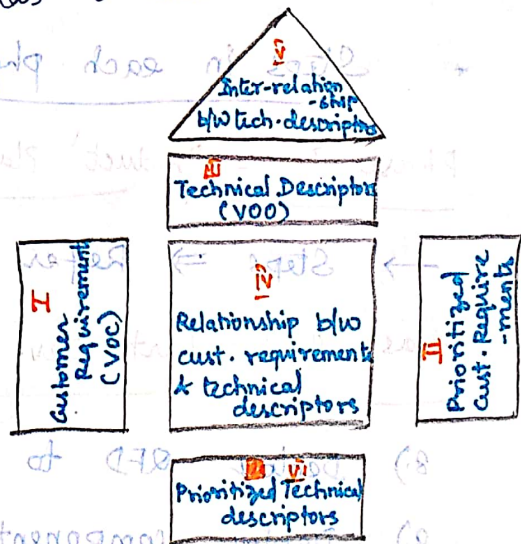 V
Inter-relation
-ship
b/w tech. descriptors
III
Technical Descriptors
(VOO)
I
Customer
Requirement
(VOC)
IV
Relationship b/w
cust. requirements
& technical
descriptors
II
Prioritized
Cust. Require
-ments
VI
Prioritized Technical
descriptors